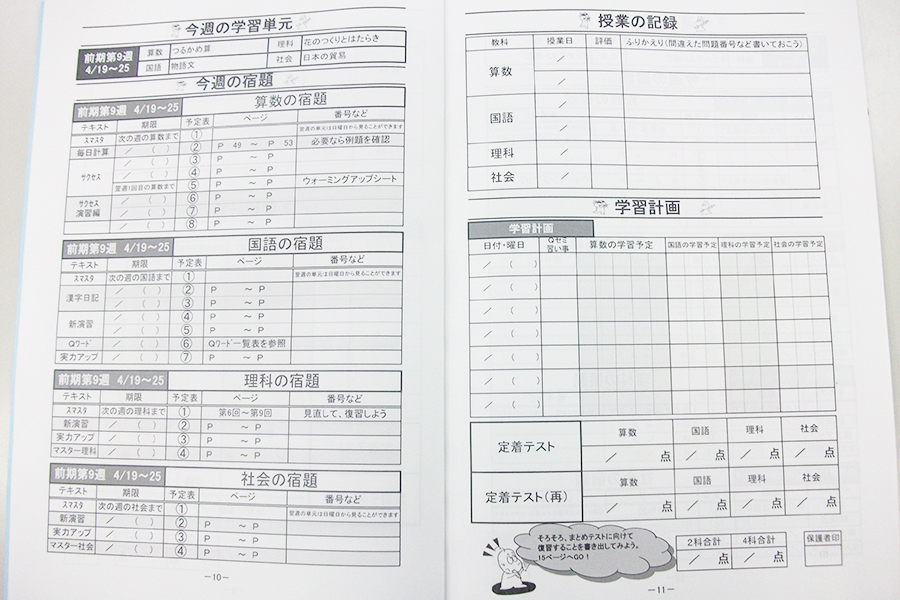 今週の学習単元
前期第9週 4/19～25 算数 つるかめ算 理科 花のつくりとはたらき
国語 物語文 社会 日本の貿易
今週の宿題
前期第9週 4/19～25 算数の宿題
テキスト 期限 予定表 ページ 番号など
スマスタ 次の週の算数まで ① 翌週の単元は日曜日から見ることができます
毎日計算 ／ （ ） ② P 49 ～ P 53 必要なら例題を確認
サクセス ／ （ ） ③ P ～ P
／ （ ） ④ P ～ P
翌週1回目の算数まで ⑤ P ～ P ウォーミングアップシート
サクセス演習編 ／ （ ） ⑥ P ～ P
／ （ ） ⑦ P ～ P
／ （ ） ⑧ P ～ P
前期第9週 4/19～25 国語の宿題
テキスト 期限 予定表 ページ 番号など
スマスタ 次の週の国語まで ① 翌週の単元は日曜日から見ることができます
漢字日記 ／ （ ） ② P ～ P
／ （ ） ③ P ～ P
新演習 ／ （ ） ④ P ～ P
／ （ ） ⑤ P ～ P
Qワード ／ （ ） ⑥ Qワード一覧表を参照
実力アップ ／ （ ） ⑦ P ～ P
前期第9週 4/19～25 理科の宿題
テキスト 期限 予定表 ページ 番号など
スマスタ 次の週の理科まで ① 第6回～第9回 見直して、復習しよう
新演習 ／ （ ） ② P ～ P
実力アップ ／ （ ） ③ P ～ P
マスター理科 ／ （ ） ④ P ～ P
前期第9週 4/19～25 社会の宿題
テキスト 期限 予定表 ページ 番号など
スマスタ 次の週の社会まで ① 翌週の単元は日曜日から見ることができます
新演習 ／ （ ） ② P ～ P
実力アップ ／ （ ） ③ P ～ P
マスター社会 ／ （ ） ④ P ～ P
－10－
授業の記録
教科 授業日 評価 ふりかえり（間違えた問題番号など書いておこう）
算数 ／
／
国語 ／
／
理科 ／
社会 ／
学習計画
学習計画
日付・曜日 Qゼミ 習い事 算数の学習予定 国語の学習予定 理科の学習予定 社会の学習予定
／ （ ）
／ （ ）
／ （ ）
／ （ ）
／ （ ）
／ （ ）
／ （ ）
定着テスト 算数 国語 理科 社会
／ 点 ／ 点 ／ 点 ／ 点
定着テスト（再） 算数 国語 理科 社会
／ 点 ／ 点 ／ 点 ／ 点
そろそろ、まとめテストに向けて
復習することを書き出してみよう。
15ページへGO！
2科合計 4科合計 保護者印
／ 点 ／ 点
－11－